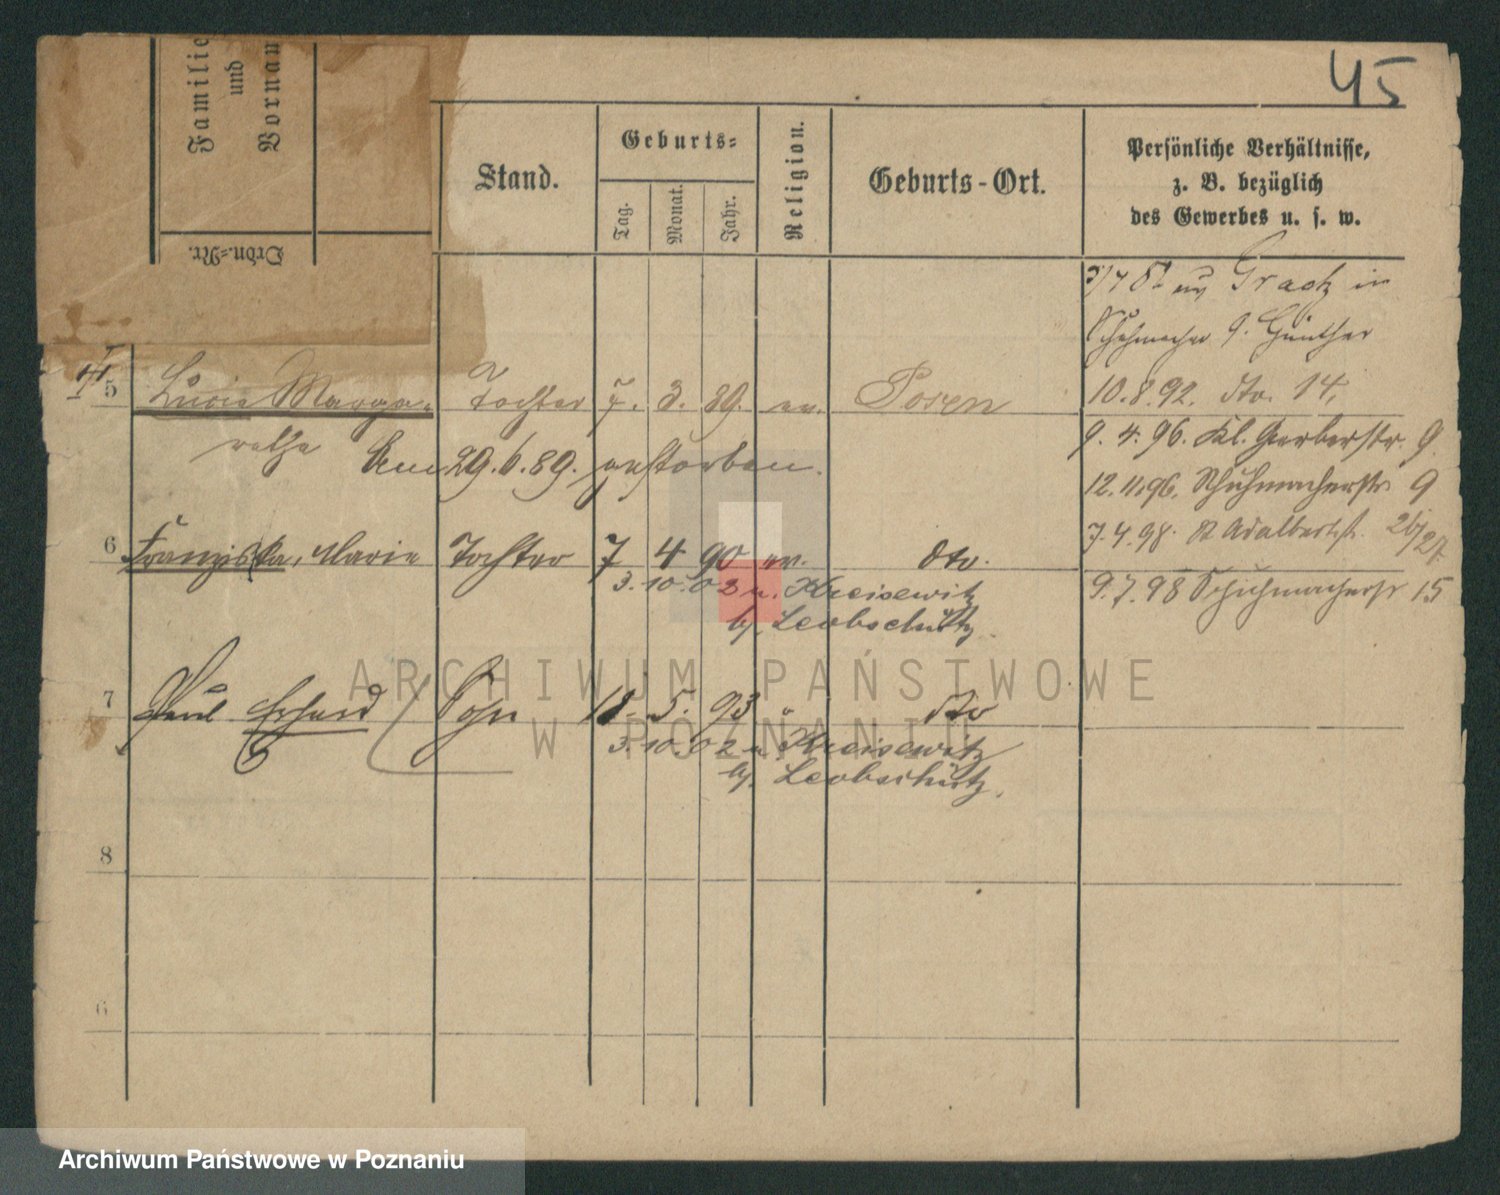 45
Familie
und
Vornam
Ordn.-Nr.
Stand.
Geburts-
Tag.
Monat.
Jahr.
Religion.
Geburts-Ort.
Persönliche Verhältnisse,
z. B. bezüglich
des Gewerbes u. s. w.
Graetz in
Schuhmacher 9. Günther
10.8.92. dto. 14,
5 Lucie Marga- Tochter 7. 3. 89. ev. Posen
rethe
9. 4. 96. Kl. Gerberstr. 9.
Am 29.6.89. gestorben.
12.11.96. Schuhmacherstr 9
7.4.98. St Adalbertst. 26/27
6 Franziska, Marie Tochter 7 4 90 ev. dto.
3. 10. 02 n. Kreisewitz
9.7.98 Schuhmacherstr 15
b/. Leobschütz.
7 Paul Erhard Sohn 18. 5. 93 " dto
3. 10. 02 n. Kreisewitz
b/. Leobschütz.
8
ARCHIWUM PAŃSTWOWE
W POZNANIU
Archiwum Państwowe w Poznaniu